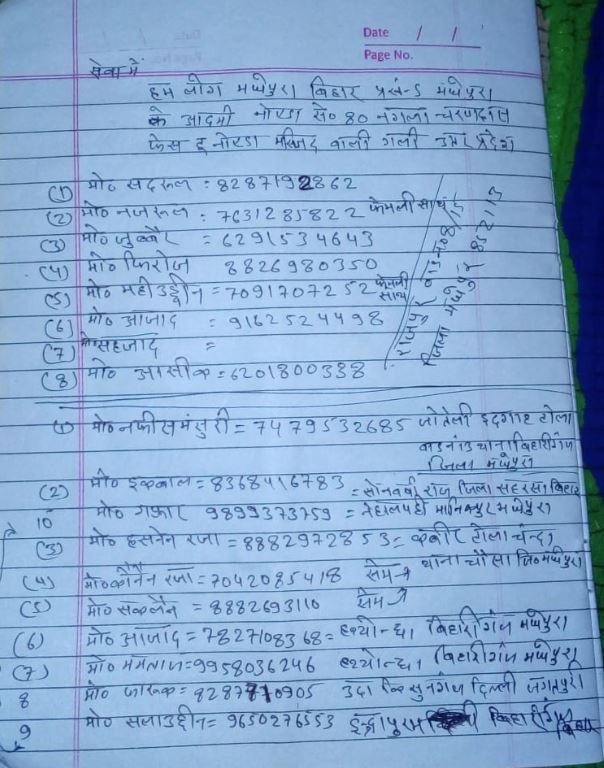 Date / /
Page No.
सेवा में
हम लोग मधेपुरा बिहार प्रखंड मधेपुरा
के आदमी नोएडा से० 80 नगला चरणदास
फेस 2 नोएडा मस्जिद वाली गली उत्तर प्रदेश
(1) मो० सदरूल = 8287192862
(2) मो० नजरूल = 7631285822 फेमली साथ
(3) मो० जुब्बैर = 6291534643
(4) मो० फिरोज 8826980350
(5) मो० महीउद्दीन = 7091707252 फेमली साथ
(6) मो० आजाद = 9162524498
(7) मो० सहजाद =
(8) मो० आसीक = 6201800338
जिला मधेपुर 852113
(1) मो० नफीस मंसुरी = 7479532685 जोतेली ईदगाह टोला
थाना बिहारीगंज
जिला मधेपुरा
(2) मो० इकबाल = 8368416783 = सोनवर्षा राज जिला सहरसा बिहार
10 मो० गफार 9899373759 = मधेपुरा
(3) मो० हसनैन रजा = 8882972853 = कबीर टोला चन्दा
थाना चौसा जि० मधेपुरा
(4) मो० कौनैन रजा = 7042085418 सेम
(5) मो० सकलैन = 8882693110 सेम
(6) मो० आजाद = 7827108368 = हथौन्धा बिहारीगंज मधेपुरा
(7) मो० ममताज = 9958036246 हथौन्धा बिहारीगंज मधेपुरा
8 मो० फारूक = 8287710905 दिल्ली जगतपुरी
9 मो० सलाउद्दीन = 9650276553